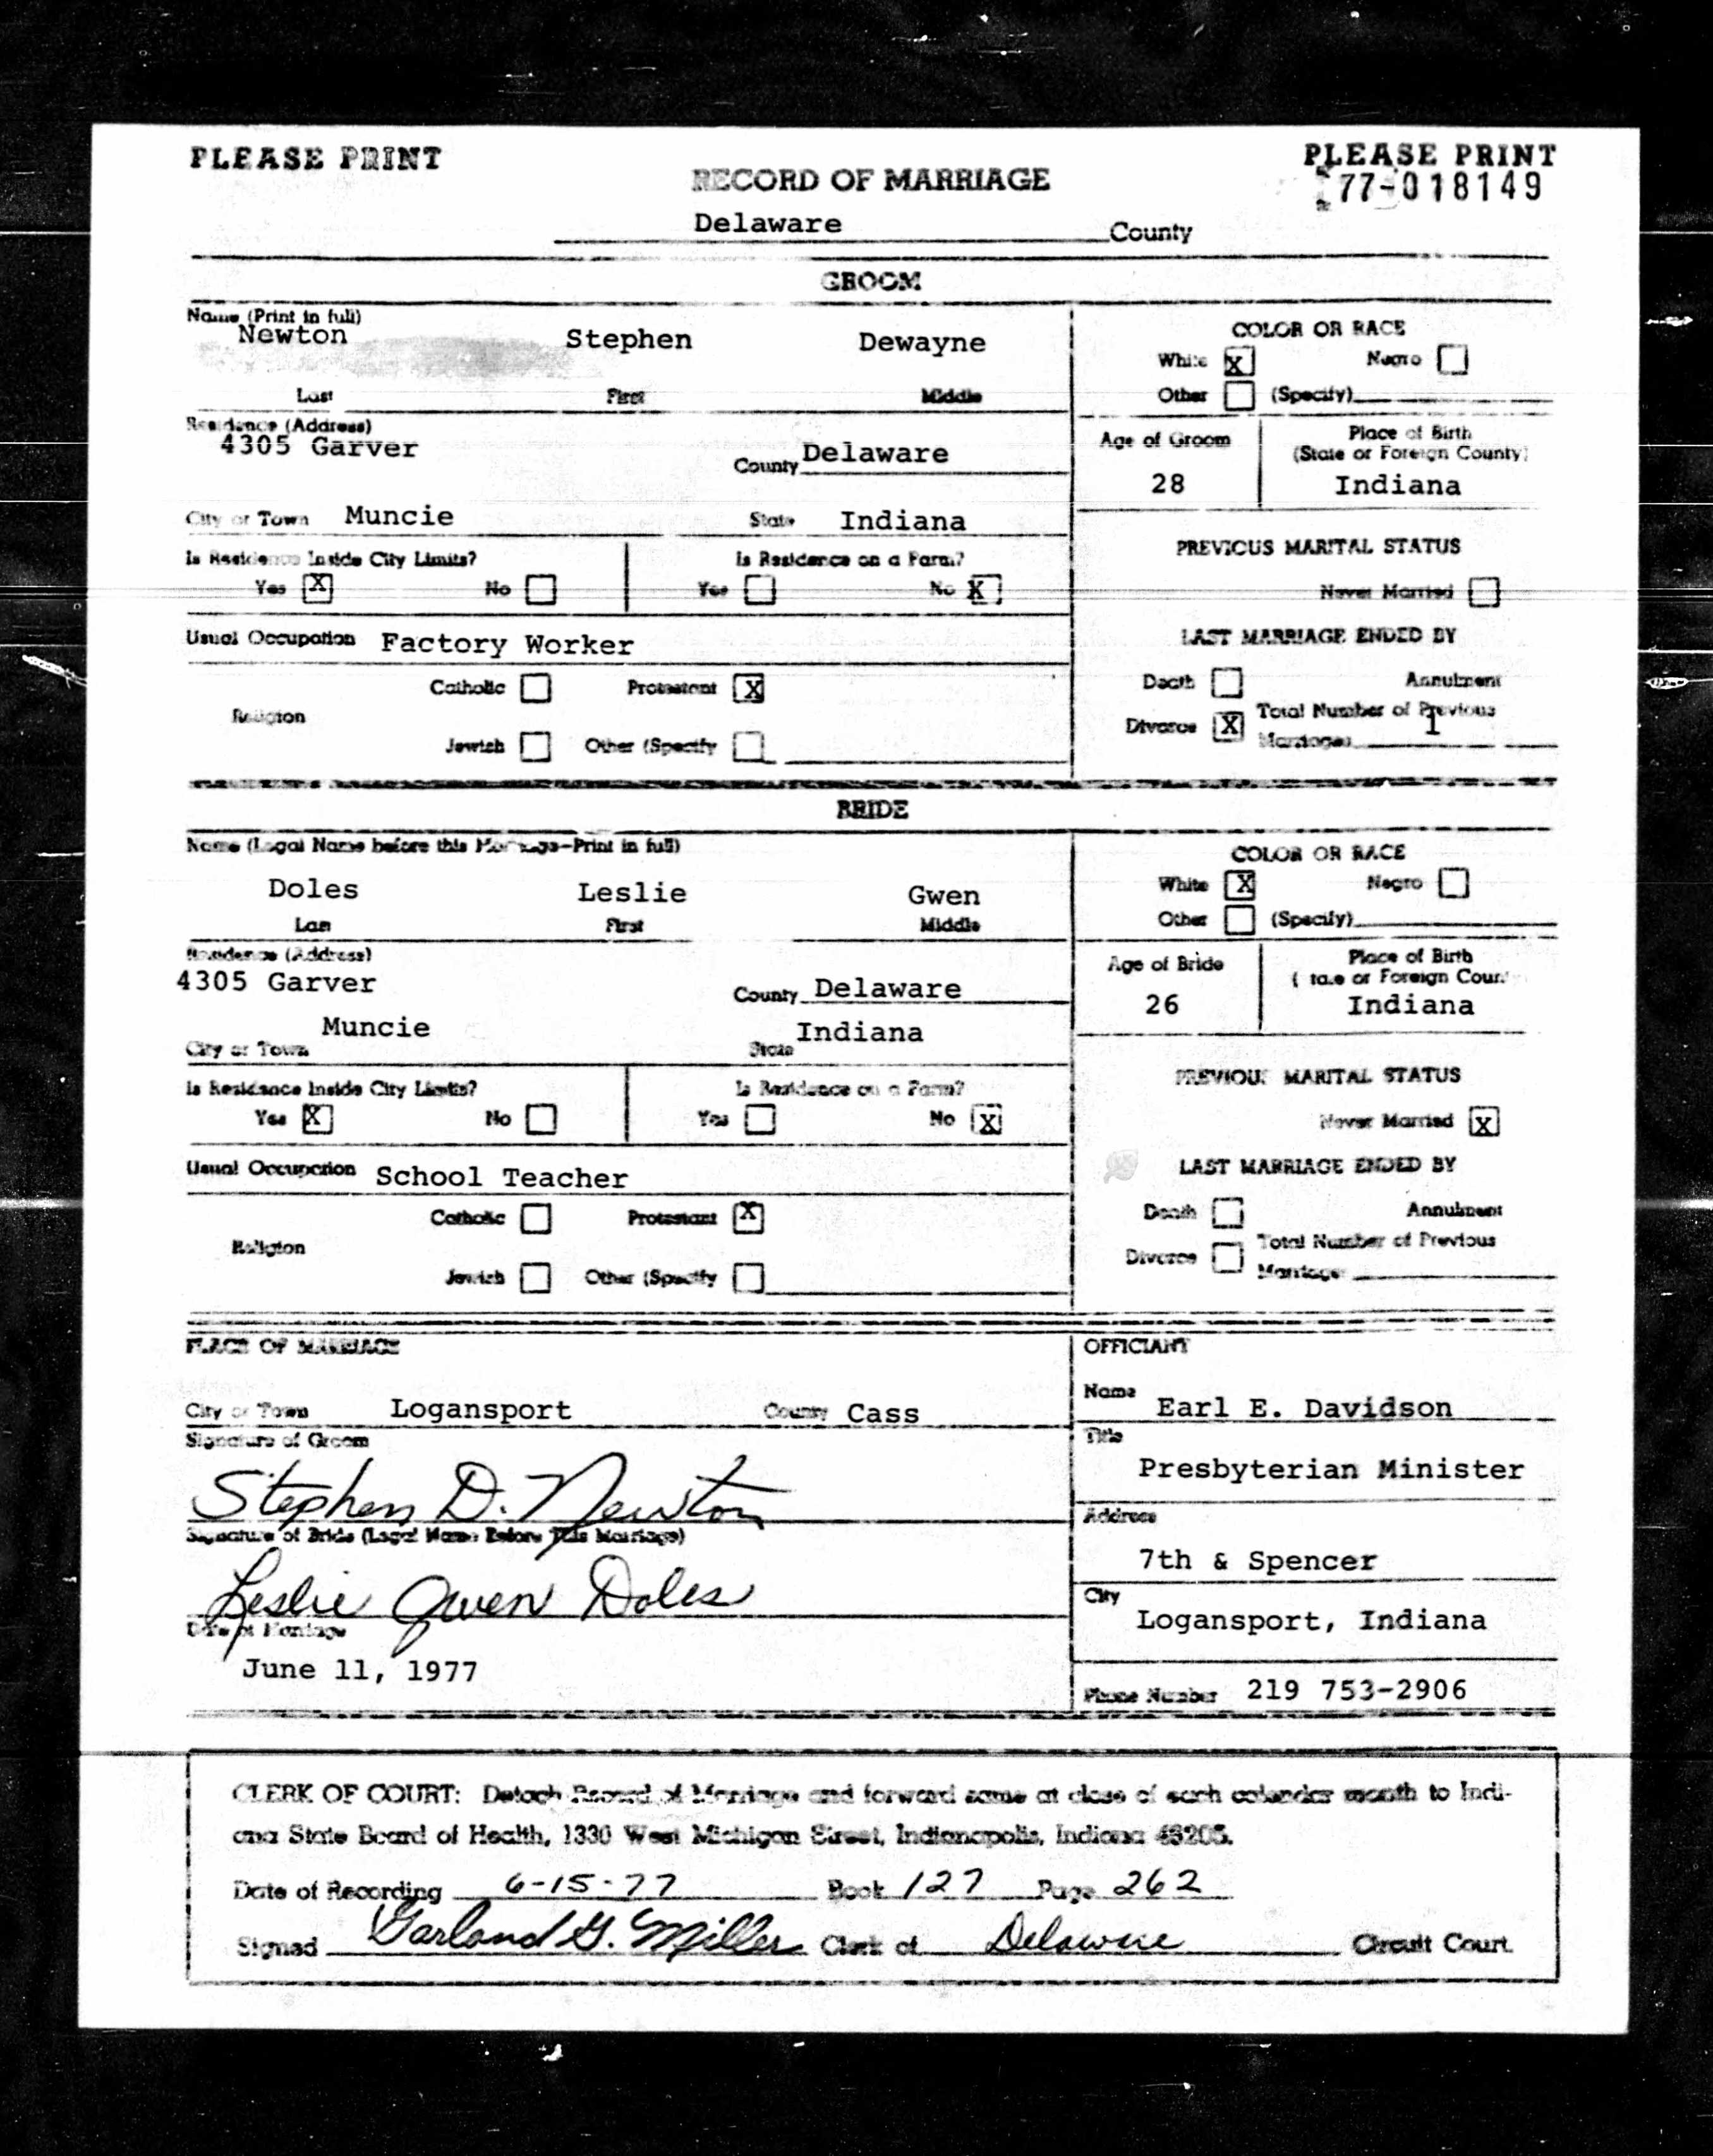 PLEASE PRINT
PLEASE PRINT
RECORD OF MARRIAGE
77-018149
Delaware County
GROOM
Name (Print in full)
Newton Stephen Dewayne
Last First Middle
COLOR OR RACE
White X Negro
Other (Specify)
Residence (Address)
4305 Garver County Delaware
Age of Groom
28
Place of Birth
(State or Foreign County)
Indiana
City or Town Muncie State Indiana
Is Residence Inside City Limits?
Yes X No
Is Residence on a Farm?
Yes No X
PREVIOUS MARITAL STATUS
Never Married
Usual Occupation Factory Worker
LAST MARRIAGE ENDED BY
Death Annulment
Divorce X Total Number of Previous
Marriages 1
Religion
Catholic Protestant X
Jewish Other (Specify
BRIDE
Name (Legal Name before this Marriage-Print in full)
Doles Leslie Gwen
Last First Middle
COLOR OR RACE
White X Negro
Other (Specify)
Residence (Address)
4305 Garver County Delaware
Age of Bride
26
Place of Birth
(State or Foreign Coun
Indiana
City or Town Muncie State Indiana
Is Residence Inside City Limits?
Yes X No
Is Residence on a Farm?
Yes No X
PREVIOUS MARITAL STATUS
Never Married X
Usual Occupation School Teacher
LAST MARRIAGE ENDED BY
Death Annulment
Divorce Total Number of Previous
Marriage
Religion
Catholic Protestant X
Jewish Other (Specify
PLACE OF MARRIAGE
City or Town Logansport County Cass
Signature of Groom
Stephen D. Newton
Signature of Bride (Legal Name Before This Marriage)
Leslie Gwen Doles
Date of Marriage
June 11, 1977
OFFICIANT
Name Earl E. Davidson
Title
Presbyterian Minister
Address
7th & Spencer
City
Logansport, Indiana
Phone Number 219 753-2906
CLERK OF COURT: Detach Record of Marriage and forward same at close of each calendar month to Indi-
ana State Board of Health, 1330 West Michigan Street, Indianapolis, Indiana
Date of Recording 6-15-77 Book 127 Page 262
Signed Garland G. Miller Clerk of Delaware Circuit Court.